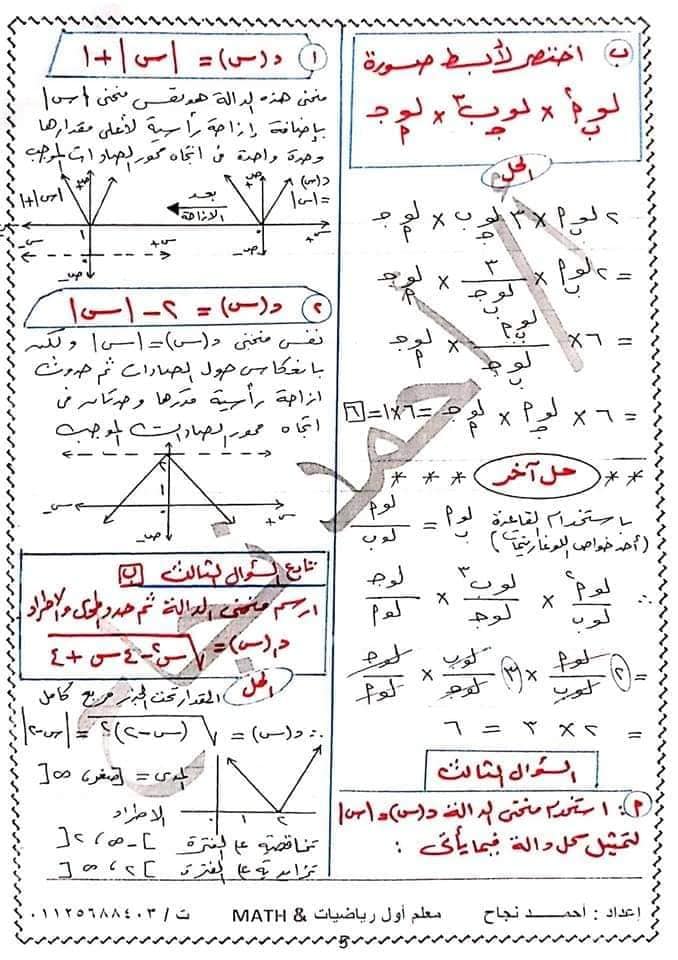 ب اختصر لأبسط صورة
لو_ب أ² × لو_جـ ب³ × لو_أ جـ
الحل
٢ لو_ب أ × ٣ لو_جـ ب × لو_أ جـ
= ٢ لو_ب أ × ٣/لو_ب جـ × لو_أ جـ
= ٦ × لو_ب أ/لو_ب جـ × لو_أ جـ
= ٦ × لو_جـ أ × لو_أ جـ = ٦×١ = ٦
** حل آخر * * *
باستخدام لقاعدة لو_ب أ = لو أ/لو ب
(أحد خواص اللوغاريتمات)
∴ لو أ²/لو ب × لو ب³/لو جـ × لو جـ/لو أ
= ٢ لو أ/لو ب × ٣ لو ب/لو جـ × لو جـ/لو أ
= ٢ × ٣ = ٦
السؤال الثالث
أ: استخدام منحنى الدالة د(س)=|س|
لتمثيل كل دالة فيما يأتى :
١ د(س) = |س| + ١
منحنى هذه الدالة هو نفس منحنى |س|
بإضافة إزاحة رأسية لأعلى مقدارها
وحدة واحدة فى اتجاه محور الصادات الموجب
د(س) = |س|
بعد الازاحة
|س|+١
س+ س- ص+ ص- ١
٢ د(س) = ٢ - |س|
نفس منحنى د(س)=|س| ولكنه
بانعكاس حول الصادات ثم حدوث
ازاحة رأسية قدرها وحدتان فى
اتجاه محور الصادات الموجب
٢ ١ س+ س- ص-
تابع السؤال الثالث ب
ارسم منحنى الدالة ثم حدد المدى والاطراد
د(س) = √س² - ٤س + ٤
الحل
المقدار تحت الجذر مربع كامل
∴ د(س) = √(س-٢)² = |س-٢|
المدى = [صفر، ∞[
٠ ١ ٢
الاطراد
تناقصية على الفترة ]-∞، ٢[
تزايدية على الفترة ]٢، ∞[
إعداد : أحمــد نجاح معلم أول رياضيات & MATH ت / ٠١١٢٥٦٨٨٤٠٣
5
أ / احمد نجاح